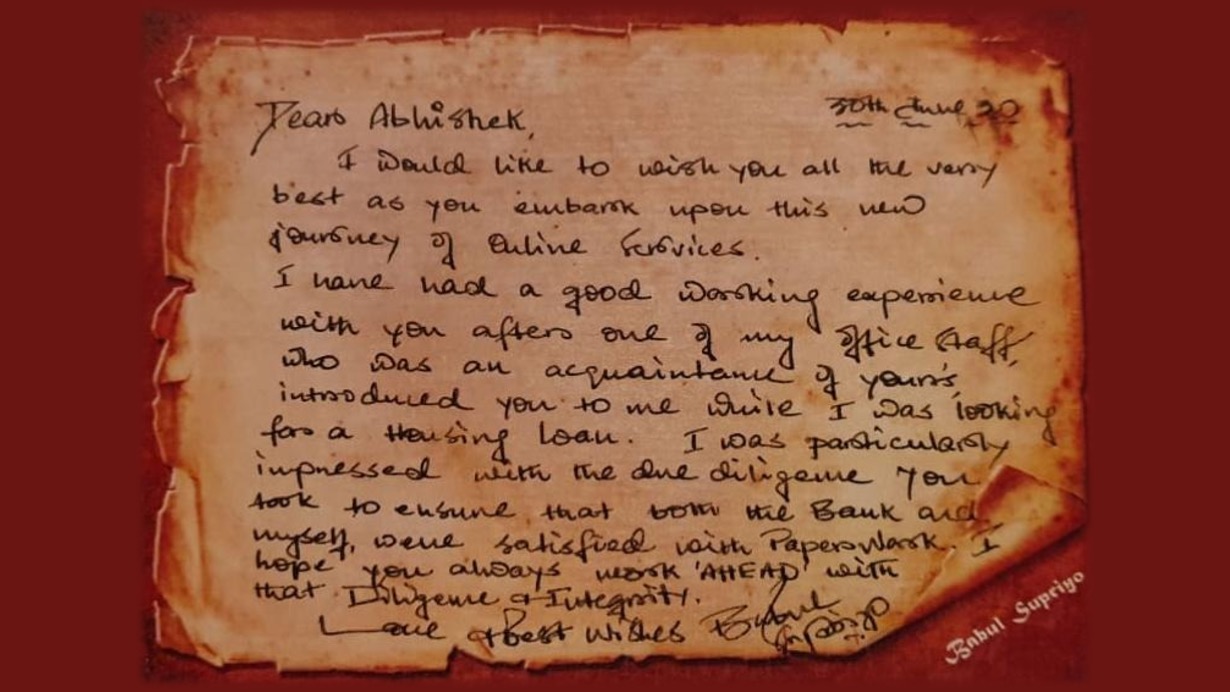 Dear Abhishek,
30th June, 20
I would like to wish you all the very
best as you embark upon this new
journey of Online Services.
I have had a good working experience
with you after one of my office staff,
who was an acquaintance of your's
introduced you to me while I was looking
for a Housing Loan. I was particularly
impressed with the due diligence you
took to ensure that both the Bank and
myself, were satisfied with Paperwork. I
hope you always work 'AHEAD' with
that Diligence & Integrity.
Love & Best Wishes Babul
Supriyo
Babul Supriyo